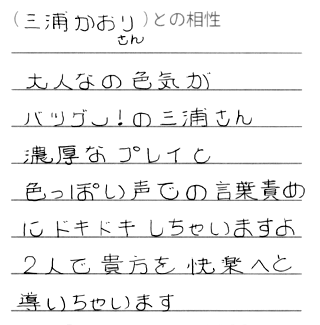 (三浦かおりさん)との相性
大人なの色気が
バツグン!の三浦さん
濃厚なプレイと
色っぽい声での言葉責め
にドキドキしちゃいますよ
2人で貴方を快楽へと
導いちゃいます